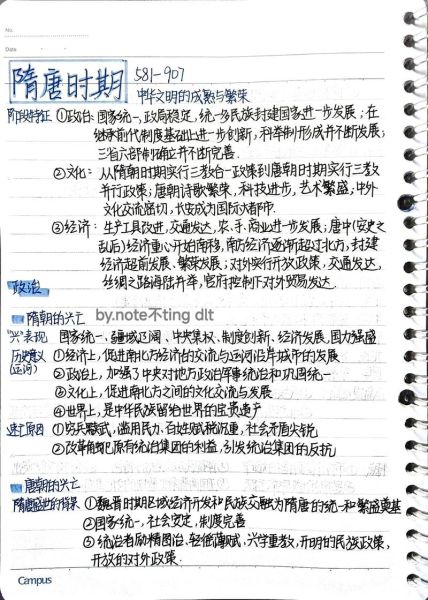 No.
Date
隋唐时期 581-907
中华文明的成熟与繁荣
阶段特征 ①政治: 国家统一, 政局稳定, 统一多民族封建国家进一步发展; 在
继承前代制度基础上进一步创新, 科举制形成并不断发展;
三省六部制确立并不断完善.
②文化: 从隋朝时期实行三教合一政策到唐朝时期实行三教
并行政策; 唐朝诗歌繁荣, 科技进步, 艺术繁盛; 中外
文化交流密切, 长安成为国际大都市.
③经济: 生产工具改进, 交通发达, 农、手、商业进一步发展; 唐中(安史之
乱后)经济重心开始南移, 南方经济逐渐超过北方, 封建
经济超前发展、繁荣发展; 对外实行开放政策, 交通发达,
丝绸之路海陆并举, 官府控制下对外贸易发达.
政治
by.note不ting dlt
隋朝的兴亡
"兴"表现 国家统一、疆域辽阔、中央集权、制度创新、经济发展、国力强盛
历史意义 ①经济上, 促进南北方经济的交流与运河沿岸城市的发展
(运河) ②政治上, 加强了中央对地方政治军事统治和巩固统一
③文化上, 促进南北方之间的文化交流与发展
④世界上, 是中华民族留给世界的宝贵遗产
速亡原因 ①穷兵黩武, 滥用民力, 百姓赋税沉重, 社会矛盾尖锐
②改革触犯原有统治集团的利益, 引发统治集团的反抗
唐朝的兴亡
隋唐盛世的背景 ①魏晋时期区域经济开发和民族交融为隋唐的统一和繁盛奠基
②国家统一, 社会安定, 制度完善
③统治者励精图治, 轻徭薄赋, 兴学重教, 开明的民族政策,
开放的对外政策.
Campus